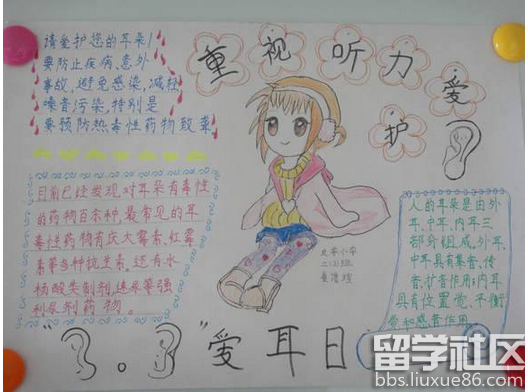 请爱护您的耳朵!
要防止疾病、意外
事故,避免感染,减轻
噪音污染,特别是
要预防热毒性药物致聋
重视听力爱
护
目前已经发现,对耳朵有毒性
的药物百余种,最常见的耳
毒性药物有庆大霉素、红霉
素等多种抗生素。还有水
杨酸类制剂,速尿等强
利尿剂药物。
人的耳朵是由外
耳、中耳、内耳三
部分组成。外耳、
中耳具有集音、传
音、扩音作用;内耳
具有位置觉、平衡
觉和感音作用。
3.3爱耳日
留学社区
bbs.liuxue86.com